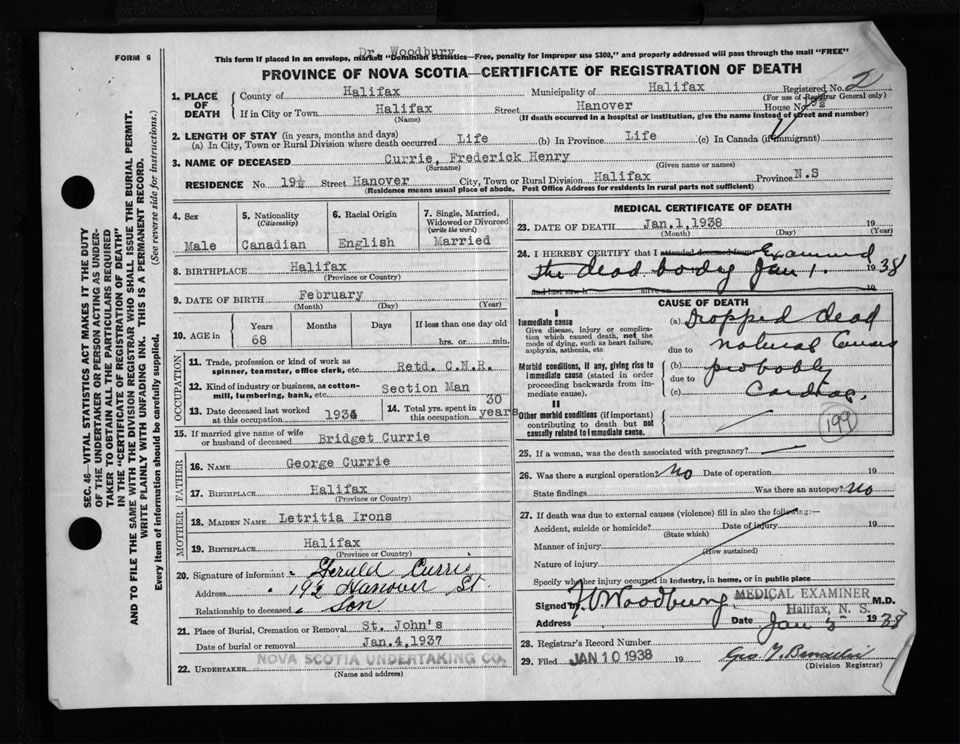 Dr. Woodbury
FORM 6
This form if placed in an envelope, marked "Dominion Statistics—Free, penalty for improper use $300," and properly addressed will pass through the mail "FREE"
PROVINCE OF NOVA SCOTIA—CERTIFICATE OF REGISTRATION OF DEATH
Registered No. 2
(For use of Registrar General only)
1. PLACE OF DEATH
County of Halifax Municipality of Halifax
If in City or Town Halifax Street Hanover House No.
(Name) (If death occurred in a hospital or institution, give the name instead of street and number)
2. LENGTH OF STAY (in years, months and days)
(a) In City, Town or Rural Division where death occurred Life (b) In Province Life (c) In Canada (if immigrant)
3. NAME OF DECEASED Currie, Frederick Henry
(Surname) (Given name or names)
RESIDENCE No 19½ Street Hanover City, Town or Rural Division Halifax Province N.S
(Residence means usual place of abode. Post Office Address for residents in rural parts not sufficient)
4. Sex
Male
5. Nationality
(Citizenship)
Canadian
6. Racial Origin
English
7. Single, Married, Widowed or Divorced
(write the word)
Married
8. BIRTHPLACE Halifax
(Province or Country)
9. DATE OF BIRTH February
(Month) (Day) (Year)
10. AGE in
Years Months Days If less than one day old
68 hrs. or min.
OCCUPATION
11. Trade, profession or kind of work as spinner, teamster, office clerk, etc. Retd. C.N.R.
12. Kind of industry or business, as cotton-mill, lumbering, bank, etc. Section Man
13. Date deceased last worked at this occupation 1934
14. Total yrs. spent in this occupation 30 years
15. If married give name of wife or husband of deceased Bridget Currie
FATHER
16. NAME George Currie
17. BIRTHPLACE Halifax
(Province or Country)
MOTHER
18. MAIDEN NAME Letritia Irons
19. BIRTHPLACE Halifax
(Province or Country)
20. Signature of informant Gerald Currie
Address 19½ Hanover St.
Relationship to deceased Son
21. Place of Burial, Cremation or Removal St. John's
Date of burial or removal Jan.4,1937
22. UNDERTAKER NOVA SCOTIA UNDERTAKING CO.
(Name and address)
MEDICAL CERTIFICATE OF DEATH
23. DATE OF DEATH Jan.1,1938 19
(Month) (Day) (Year)
24. I HEREBY CERTIFY that I attended deceased from Examined
the dead body Jan 1. 1938
and last saw h alive on 19
CAUSE OF DEATH
I
Immediate cause
Give disease, injury or complication which caused death, not the mode of dying, such as heart failure, asphyxia, asthenia, etc.
(a) Dropped dead
due to natural Causes
Morbid conditions, if any, giving rise to immediate cause (stated in order proceeding backwards from immediate cause).
(b) probably
due to
(c) Cardiac.
II
Other morbid conditions (if important) contributing to death but not causally related to immediate cause.
199
25. If a woman, was the death associated with pregnancy?
26. Was there a surgical operation? No Date of operation 19
State findings Was there an autopsy? No
27. If death was due to external causes (violence) fill in also the following:—
Accident, suicide or homicide? Date of injury 19
(State which)
Manner of injury
(How sustained)
Nature of injury
Specify whether injury occurred in industry, in home, or in public place
Signed by Woodbury M.D.
MEDICAL EXAMINER
Halifax, N. S.
Address Date Jan 3 1938
28. Registrar's Record Number
29. Filed JAN 10 1938 19
(Division Registrar)
SEC. 46—VITAL STATISTICS ACT MAKES IT THE DUTY
OF THE UNDERTAKER OR PERSON ACTING AS UNDER-
TAKER TO OBTAIN ALL THE PARTICULARS REQUIRED
IN THE "CERTIFICATE OF REGISTRATION OF DEATH"
AND TO FILE THE SAME WITH THE DIVISION REGISTRAR WHO SHALL ISSUE THE BURIAL PERMIT.
WRITE PLAINLY WITH UNFADING INK. THIS IS A PERMANENT RECORD.
Every item of information should be carefully supplied. (See reverse side for instructions.)